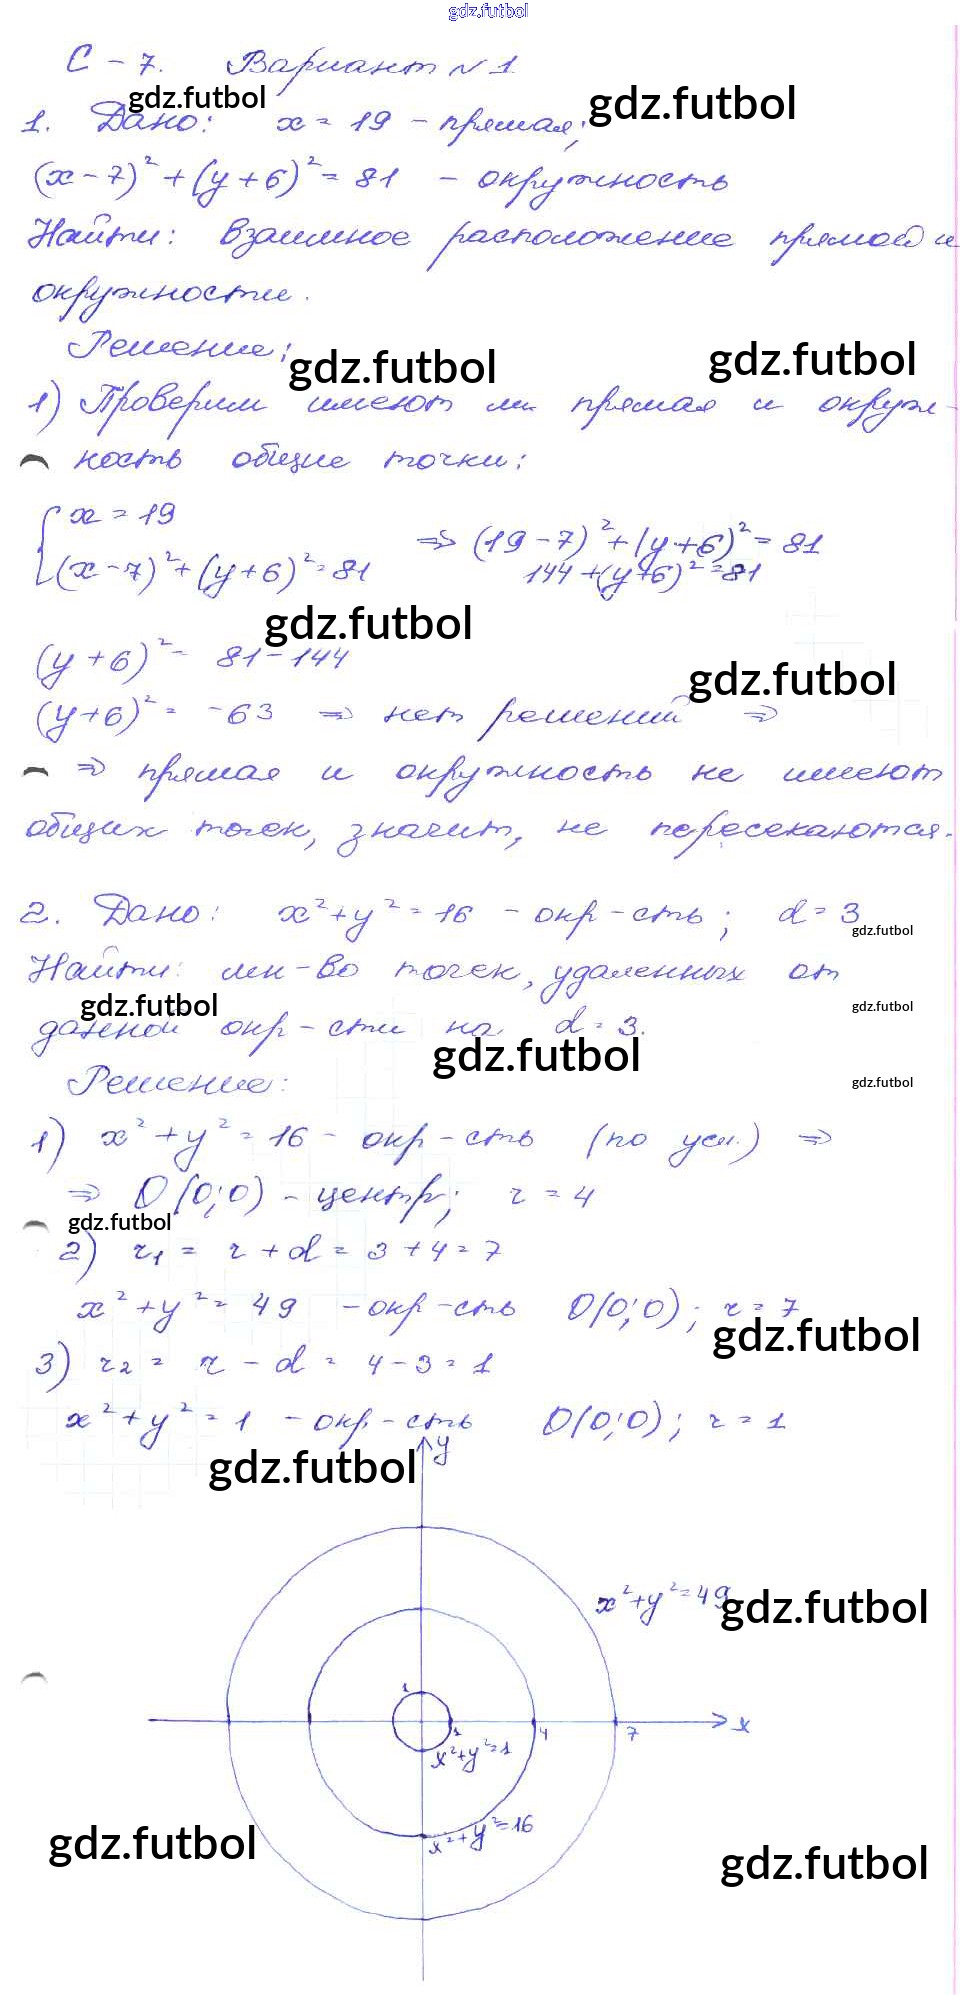 gdz.futbol
С - 7. Вариант №1
gdz.futbol gdz.futbol
1. Дано: x = 19 - прямая;
(x - 7)² + (y + 6)² = 81 - окружность
Найти: взаимное расположение прямой и
окружности.
Решение:
gdz.futbol gdz.futbol
1) Проверим имеют ли прямая и окруж-
ность общие точки:
{ x = 19
(x - 7)² + (y + 6)² = 81 ⇒ (19 - 7)² + (y + 6)² = 81
144 + (y + 6)² = 81
gdz.futbol
(y + 6)² = 81 - 144
gdz.futbol
(y + 6)² = -63 ⇒ нет решений ⇒
⇒ прямая и окружность не имеют
общих точек, значит, не пересекаются.
2. Дано: x² + y² = 16 - окр-сть; d = 3
gdz.futbol
Найти: мн-во точек, удаленных от
gdz.futbol gdz.futbol
данной окр-сти на d = 3.
gdz.futbol
Решение:
gdz.futbol
1) x² + y² = 16 - окр-сть (по усл.) ⇒
⇒ O(0;0) - центр; r = 4
gdz.futbol
2) r₁ = r + d = 3 + 4 = 7
x² + y² = 49 - окр-сть O(0;0); r = 7
gdz.futbol
3) r₂ = r - d = 4 - 3 = 1
x² + y² = 1 - окр-сть O(0;0); r = 1
y
gdz.futbol
x² + y² = 49
gdz.futbol
1
1 4 7 x
x² + y² = 1
x² + y² = 16
gdz.futbol
gdz.futbol